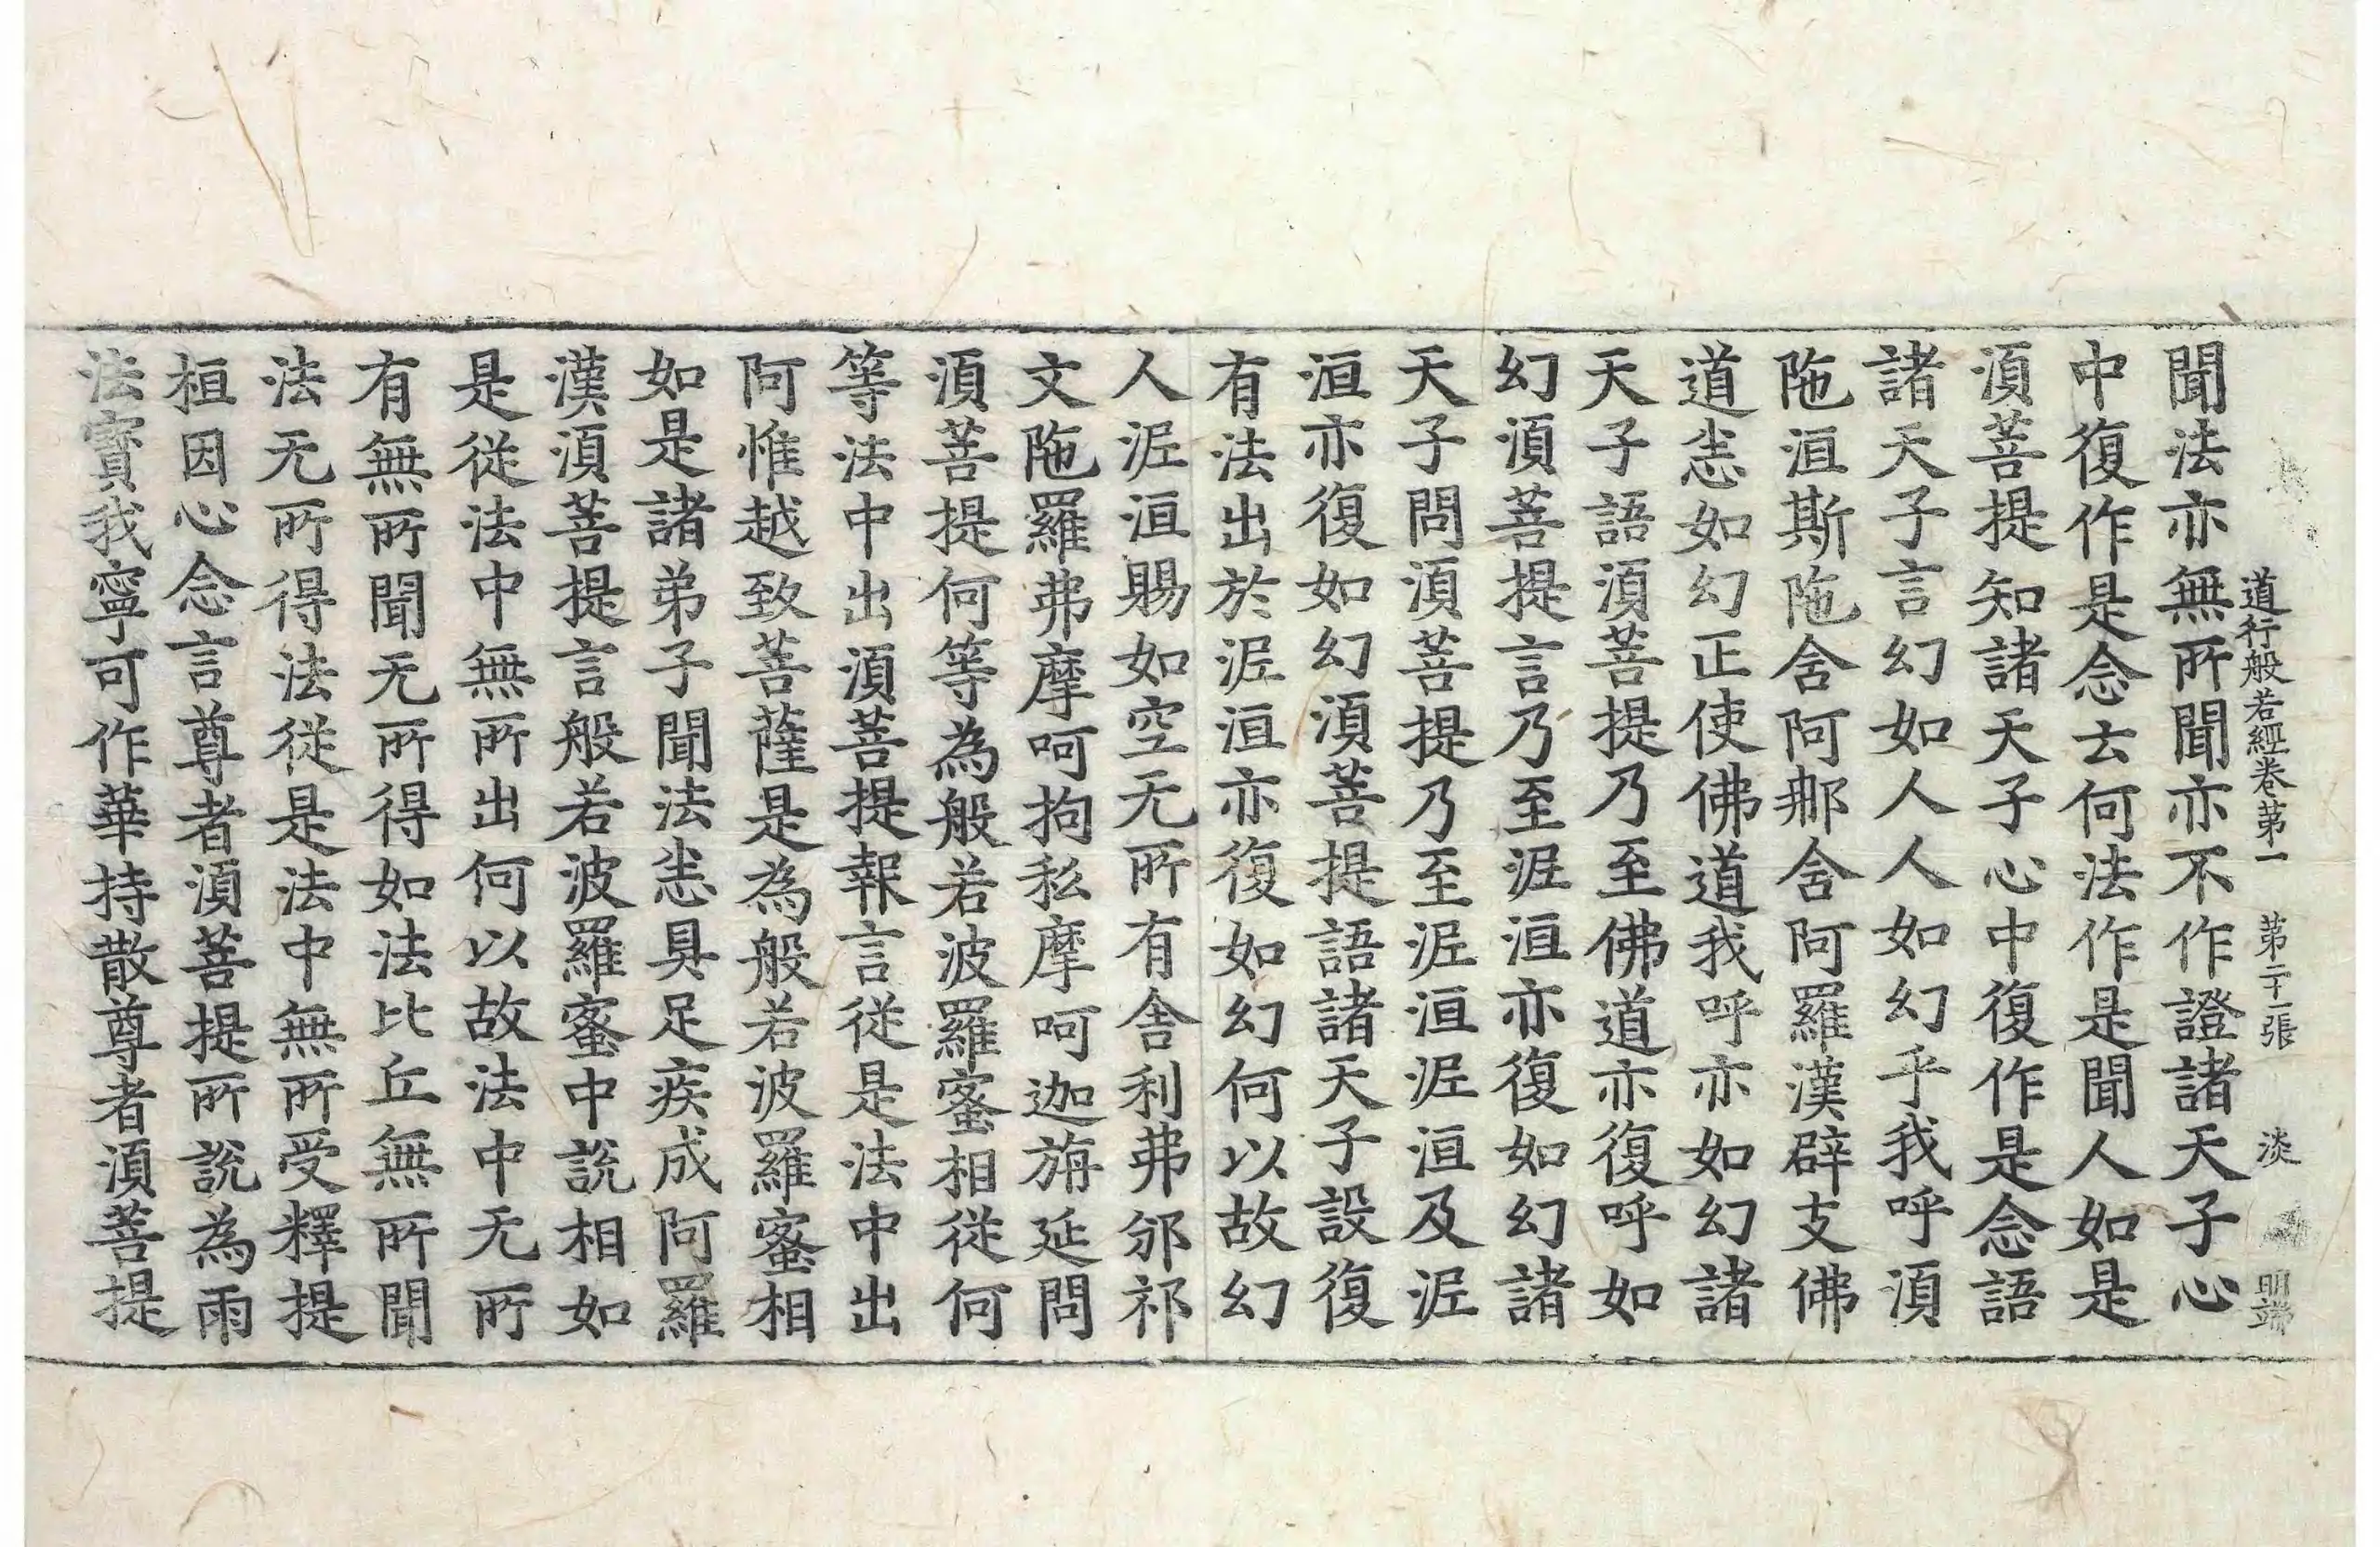 道行般若經卷第一 第二十一張 淡 明端
聞法亦無所聞亦不作證諸天子心
中復作是念去何法作是聞人如是
湏菩提知諸天子心中復作是念語
諸天子言幻如人人如幻乎我呼湏
陁洹斯陁含阿那含阿羅漢辟支佛
道悉如幻正使佛道我呼亦如幻諸
天子語湏菩提乃至佛道亦復呼如
幻湏菩提言乃至泥洹亦復如幻諸
天子問湏菩提乃至泥洹泥洹及泥
洹亦復如幻湏菩提語諸天子設復
有法出於泥洹亦復如幻何以故幻
人泥洹賜如空无所有舎利弗邠祁
文陁羅弗摩呵拘私摩呵迦旃延問
湏菩提何等為般若波羅蜜相従何
等法中出湏菩提報言従是法中出
阿惟越致菩薩是為般若波羅蜜相
如是諸弟子聞法悉具足疾成阿羅
漢湏菩提言般若波羅蜜中說相如
是従法中無所出何以故法中无所
有無所聞无所得如法比丘無所聞
法无所得法従是法中無所受釋提
桓因心念言尊者湏菩提所說為雨
法寶我寧可作華持散尊者湏菩提